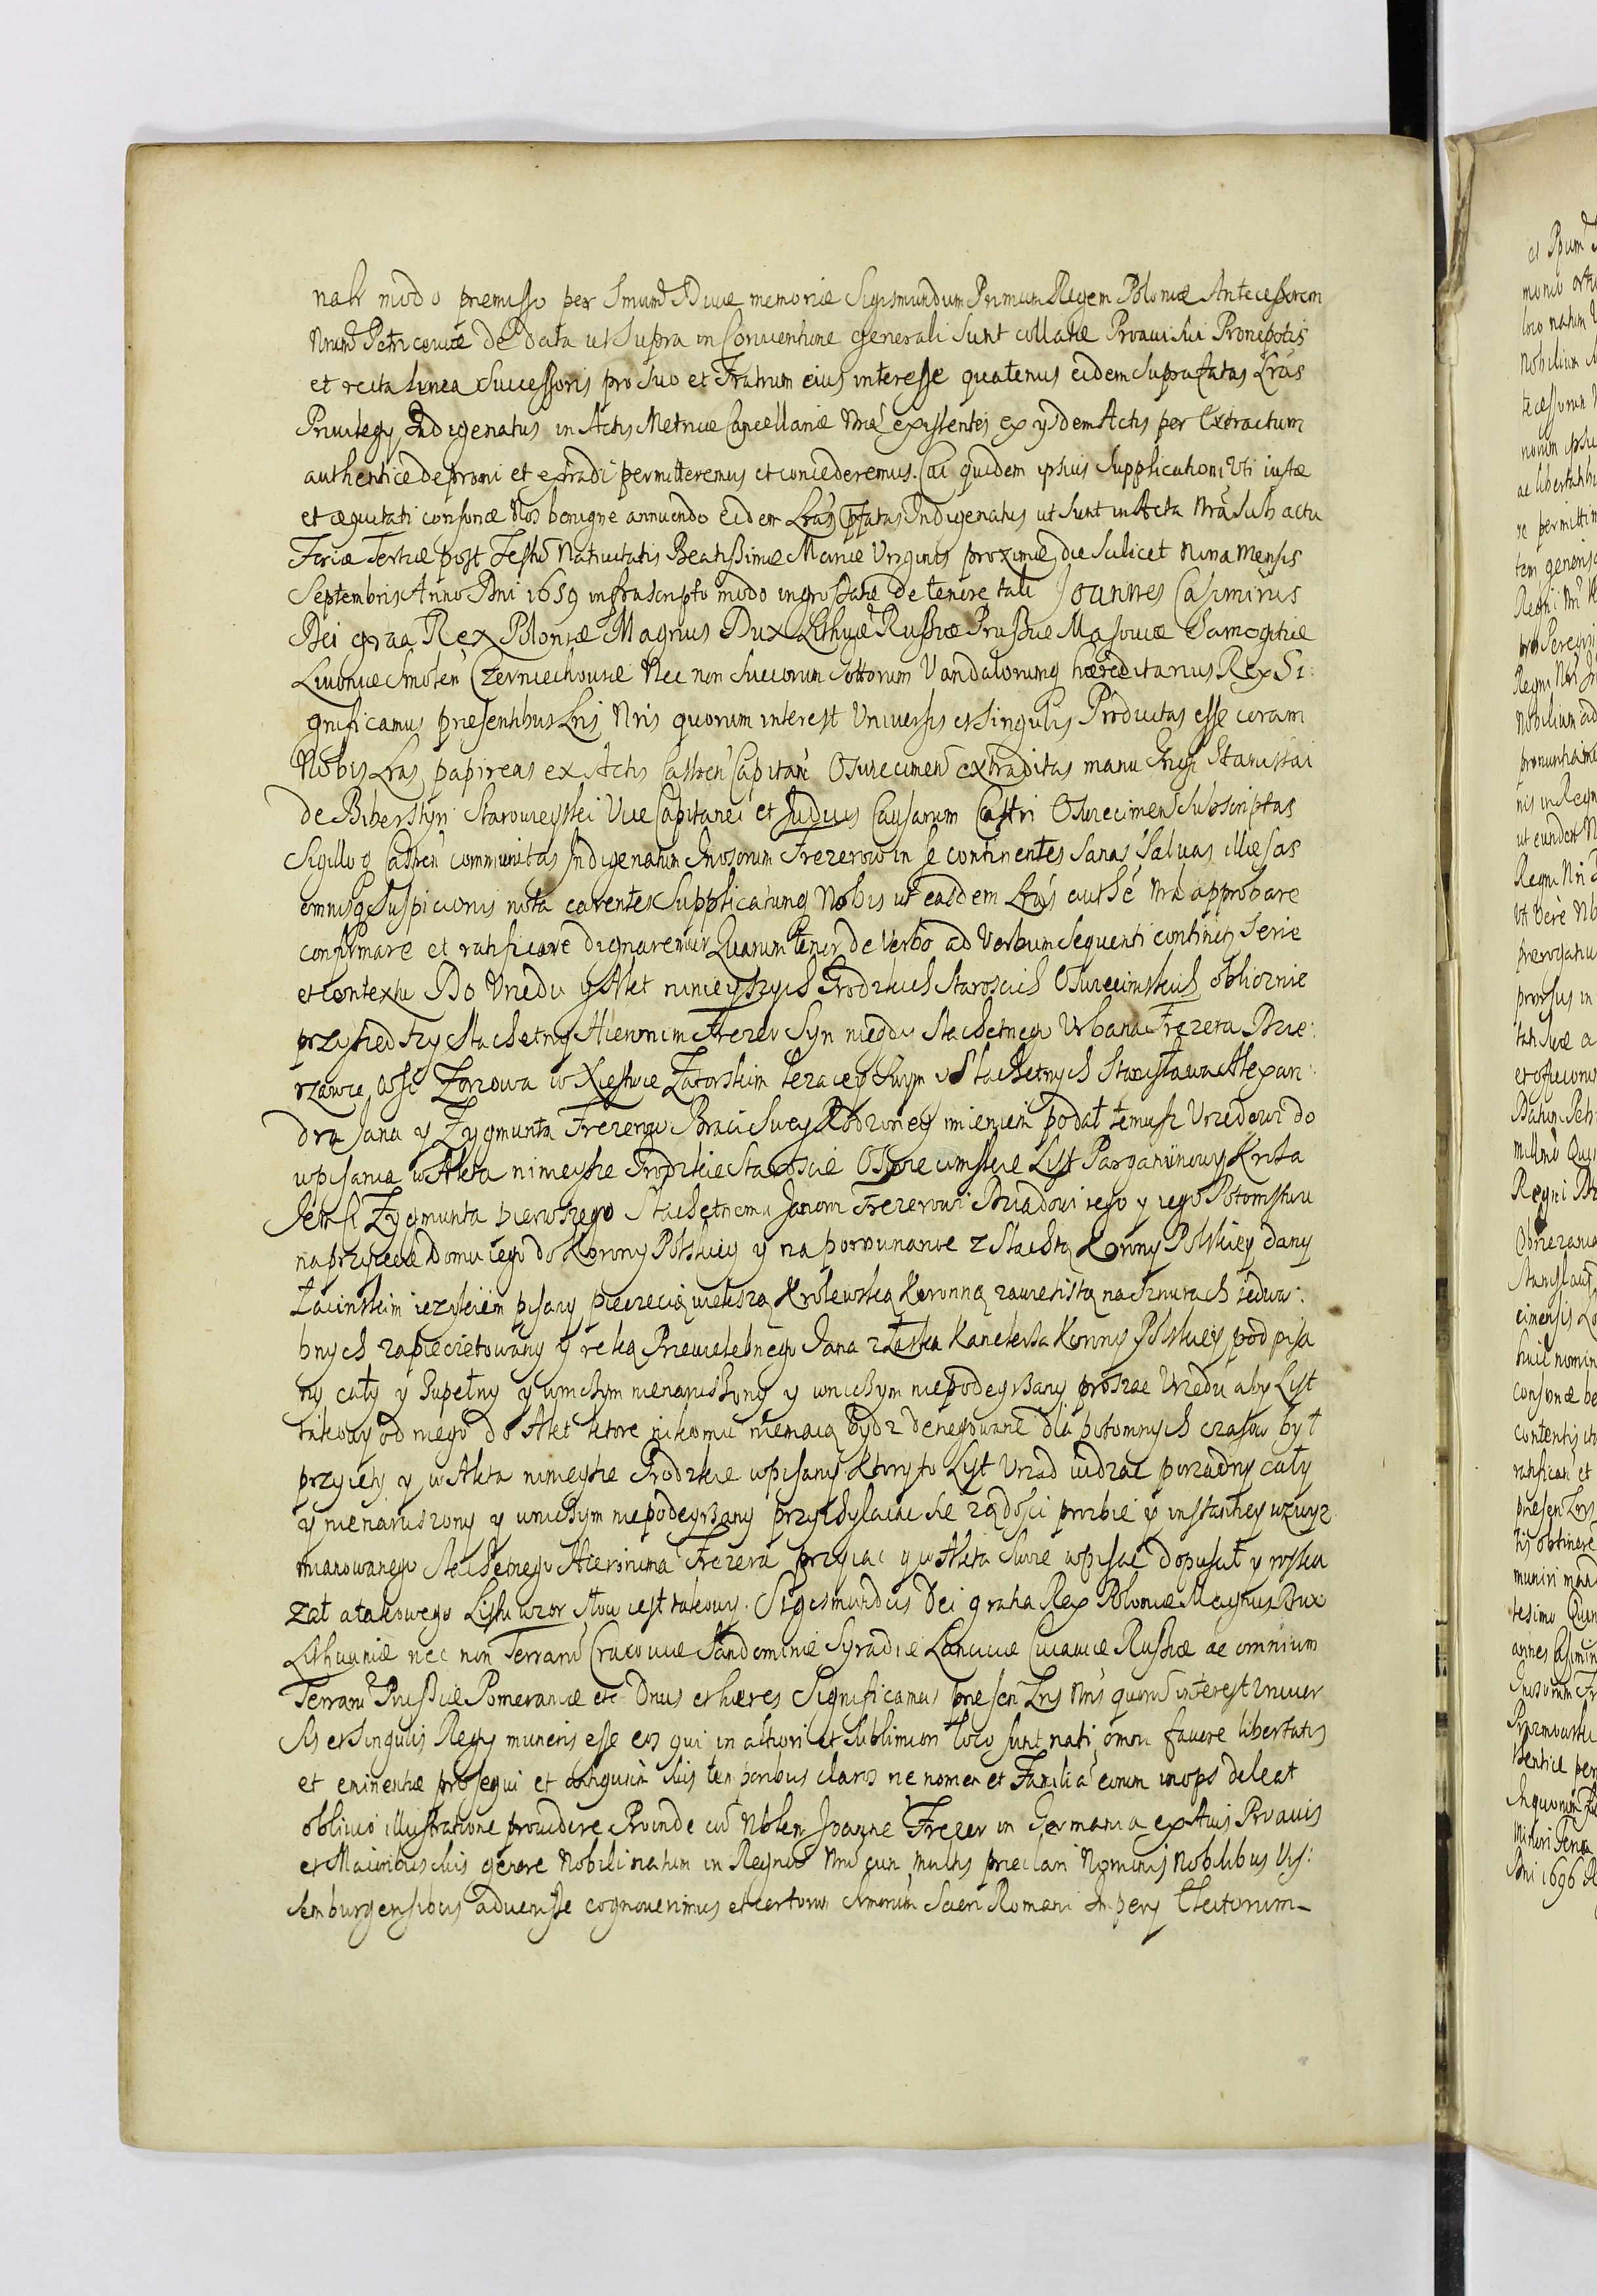 nali modo premisso per Smum Divæ memoriæ Sigismundum Primum Regem Poloniæ Antecessorem
Nrum Petricoviæ de data ut Supra in Conventione Generali Sunt collatæ Proavi Sui Pronepotis
et recta Linea Successoris pro Suo et Fratrum eius interesse quatenus eidem Supra fatas Lras
Privilegy Indigenatus in Actis Metricæ Cancellariæ Nræ existentes ex ysdem Actis per Extractum
authentice depromi et extradi permitteremus et concederemus. Cui quidem ipsius Supplicationi Uti iustæ
et æquitati consonæ Nos benigne annuendo Eidem Lras Pfatas Indigenatus ut Sunt in Acta Nra Sub actu
Feriæ Tertiæ post Festum Nativitatis Beatissimæ Mariæ Virginis proximæ die Scilicet Nona Mensis
Septembris Anno Dni 1659 infrascripto modo ingrossatæ de tenore tali Joannes Casimirus
Dei graa Rex Poloniæ Magnus Dux Lithuæ Russiæ Prussiæ Masoviæ Samogitiæ
Livoniæ Smolen Czerniechoviæ Nec non Suecorum Gottorum Vandalorumq hæreditarius Rex Si:
gnificamus præsentibus Lris Nris quorum interest Universis et Singulis Productas esse coram
Nobis Lras papireas ex Actis Castren Capitan Osuiecimen extraditas manu Gnsi Stanislai
de Biberstyn Starowieyski Vice Capitanei et Judicis Causarum Castri Osuiecimen Subscriptas
Sigilloq Castren communitas Indigenatum Gnosorum Frezerow in Se continentes Sanas Salvas illæsas
omnisq Suspicionis nota carentes Supplicatumq Nobis ut easdem Lras authē Nra approbare
confirmare et ratificare dignaremur Quarum tenor de Verbo ad Verbum Sequenti continetr Serie
et contextu Do Vrzedu y Akt ninieyszych Grodzkich Staroscich Osuiecimskich oblicznie
przyszedszy Slachetny Hieronim Frezer Syn niegdy Slachetnego Urbana Frezera Dzie:
rzawce Wsi Zorzowa w Xięstwie Zatorskim lezacey Swym y Slachetnych Stanisława Alexan:
dra Jana y Zygmunta Frezerow Braci Swey Rodzoney imieniem podał temusz Vrzedowi do
wpisania w Akta ninieysze Grodzkie Staroscie Osuiecimskie List Pargaminowy Krola
Jeº Mści Zygmunta pierwszego Slachetnemu Janowi Frezerowi Dziadowi iego y iego Potomstwu
na przyięcie Domu iego do Korony Polskiey y na porownanie z Slachtą Korony Polskiey dany
Łacinskim ięzykiem pisany pieczecią wielkszą Krolewską Koronną zawiesistą na Sznurach iedwa:
bnych zapieczetowany y reką Przewielebnego Jana z Łaska Kanclerza Korony Polskiey podpisa
ny cały y Zupełny y wniczym nienaruszony y wniczym niepodeyrzany proszac Vrzedu aby List
takowy od niego do Akt ktore nikomu niemaią bydz denegowane dla potomnych czasow był
przyięty y w Akta ninieysze Grodzkie wpisany Ktory to List Vrzad widzac porządny cały
y nienaruszony y wniczym niepodeyrzany przychylaiac sie ządosci prozbie y instantiey wzwysz
mianowanego Slachetnego Hieronima Frezera przyiac y w Akta Swoie wpisac dopuscił y roska
zał a takowego Listu wzor Słow iest takowy. Sigismundus Dei gratia Rex Poloniæ Magnus Dux
Lithuaniæ nec non Terraru Cracoviæ Sandomiriæ Syradiæ Lanciciæ Cuiaviæ Russiæ ac omnium
Terraru Prussiæ Pomeraniæ etc Dnus et hæres Significamus presen Lris Nris quoru interest Univer
Sis et Singulis Regy muneris esse eos qui in altiori et Sublimiori loco Sunt nati omni favere libertatis
et eminentiæ prosequi et Suis temporibus claros ne nomen et Familiā eorum inops deleat
oblivio illustratione providere Proinde cū Nblem Joanne Frezer in Germania ex Avis Proavis
et Maioribus Suis genere Nobili natum in Regnū Nrū cum multis præclari Nominis Nobilibus
semburgensibus advenisse cognoverimus et certorum Smorum Sacri Romani Impery Electorum